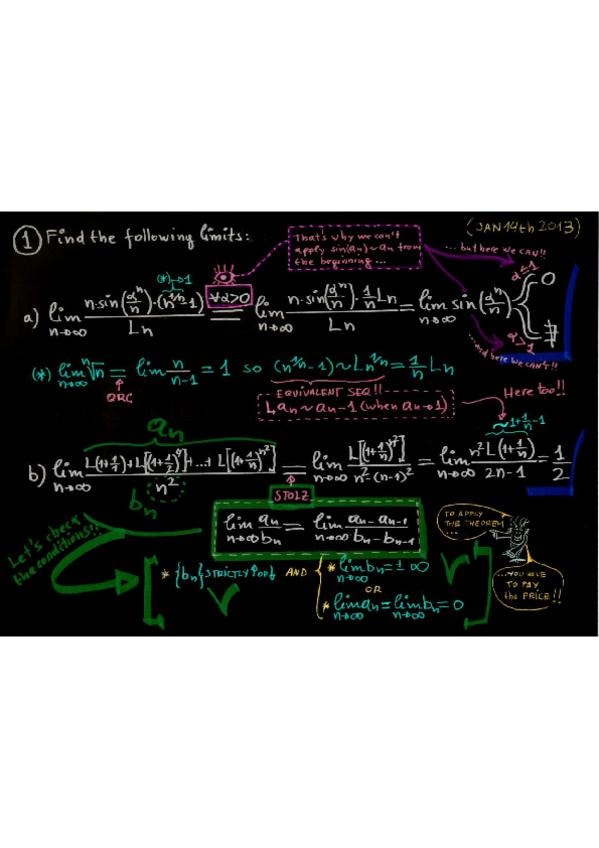 ① Find the following limits:
(JAN 14th 2013)
That's why we can't
apply sin(an)~an from
the beginning...
...but here we CAN!!
(*)→1
a) lim n→∞ n·sin(αⁿ/n)·(n^{1/n}-1) / Ln = ∀α>0 lim n→∞ n·sin(αⁿ/n)·1/n Ln / Ln = lim n→∞ sin(αⁿ/n)
α≤1 0
α>1 ∄
...and here we CAN'T!!
(*) lim n→∞ ⁿ√n = lim n/n-1 = 1 so (n^{1/n}-1)~Ln^{1/n}=1/n Ln
QRC
EQUIVALENT SEQ!!
Lan~an-1 (when an→1)
Here too!!
~1+1/n-1
an
b) lim n→∞ L(1+1/1)+L[(1+1/2)⁴]+...+L[(1+1/n)^{n²}] / n² = lim n→∞ L[(1+1/n)^{n²}] / n²-(n-1)² = lim n→∞ n²L(1+1/n) / 2n-1 = 1/2
bn
STOLZ
lim n→∞ an/bn = lim n→∞ an-an-1 / bn-bn-1
Let's check
the conditions!!
TO APPLY
THE THEOREM
...
* {bn} STRICTLY ↑OR↓ AND
* lim n→∞ bn=±∞
OR
* lim n→∞ an=lim n→∞ bn=0
...YOU HAVE
TO PAY
the PRICE!!